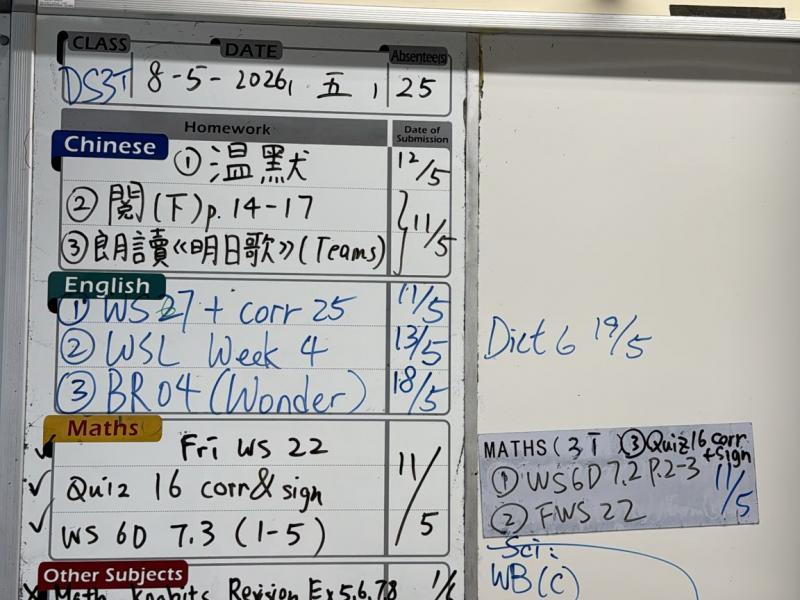 CLASS DATE Absentee(s)
DS3T 8-5-2026, 五, 25
Homework Date of Submission
Chinese
① 溫默 12/5
② 閱(下)p.14-17
③ 朗讀《明日歌》(Teams) 11/5
English
① WS 27 + corr 25 11/5
② WSL Week 4 13/5
③ BR04 (Wonder) 18/5
Maths
Fri WS 22
Quiz 16 corr & sign 11/5
WS 6D 7.3 (1-5)
Other Subjects
Math Revision Ex 5,6,7,8
Dict 6 19/5
MATHS (3T) ③ Quiz 16 corr
+ sign
① WS6D 7.2 P.2-3 11/5
② FWS 22
Sci:
WB(C)